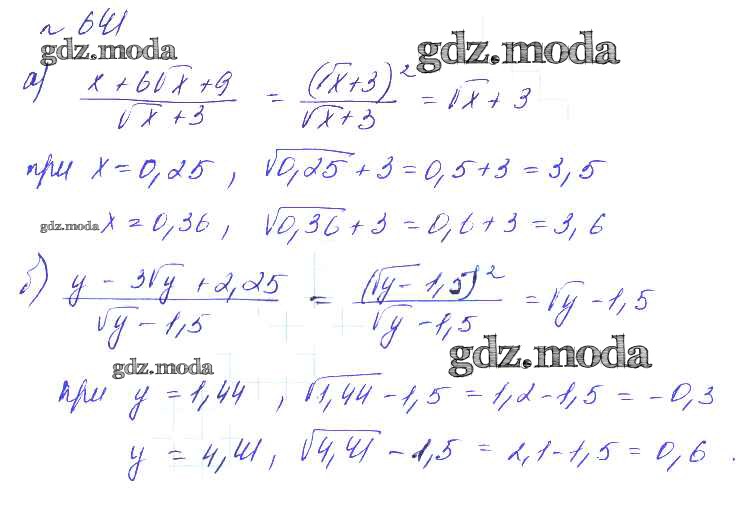 № 641
gdz.moda
gdz.moda
а) (x + 6√x + 9)/(√x + 3) = (√x + 3)²/(√x + 3) = √x + 3
при x = 0,25 , √0,25 + 3 = 0,5 + 3 = 3,5
gdz.moda x = 0,36 , √0,36 + 3 = 0,6 + 3 = 3,6
б) (y - 3√y + 2,25)/(√y - 1,5) = (√y - 1,5)²/(√y - 1,5) = √y - 1,5
gdz.moda
gdz.moda
при y = 1,44 , √1,44 - 1,5 = 1,2 - 1,5 = -0,3
y = 4,41 , √4,41 - 1,5 = 2,1 - 1,5 = 0,6 .